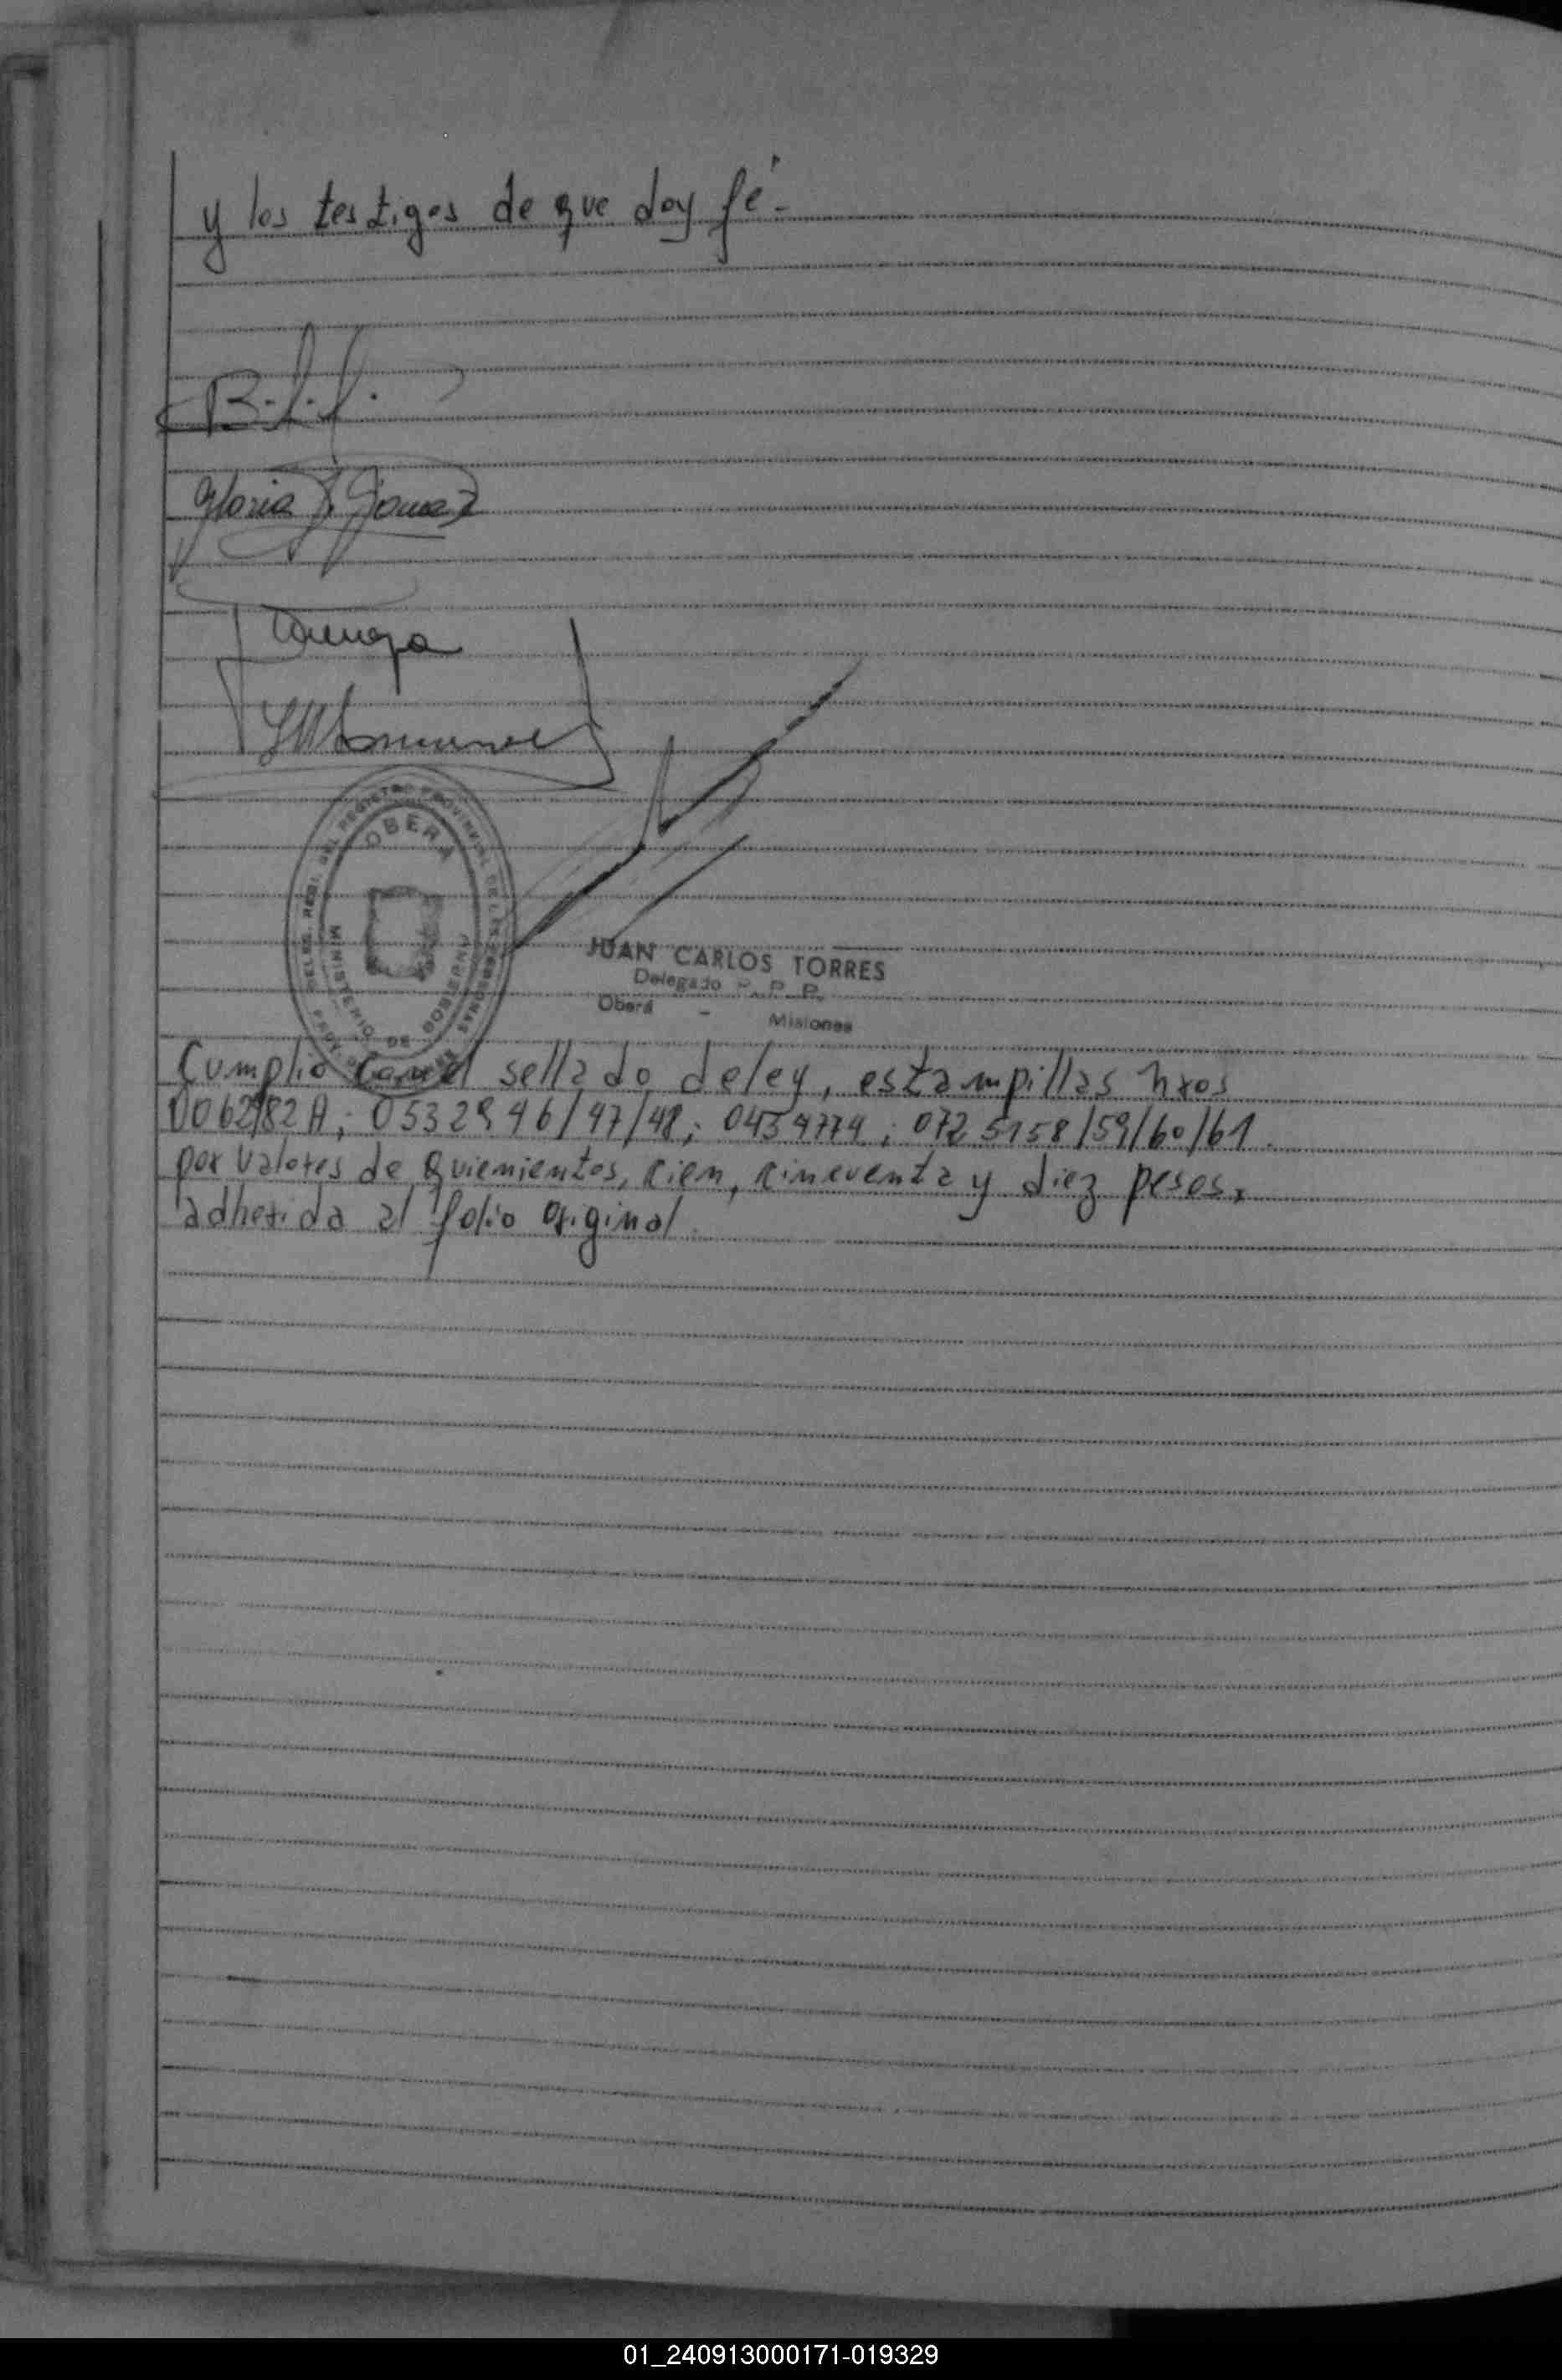 y los testigos de que doy fé.
Gloria Gomez
OBERA
MINISTERIO DE
JUAN CARLOS TORRES
Delegado R. P. P.
Oberá - Misiones
Cumplió con el sellado de ley, estampillas nros
0062182A; 0532946/47/48; 0454774; 0725158/59/60/61.
por valores de Quienientos, cien, cincuenta y diez pesos,
adherida al folio original.
01_240913000171-019329